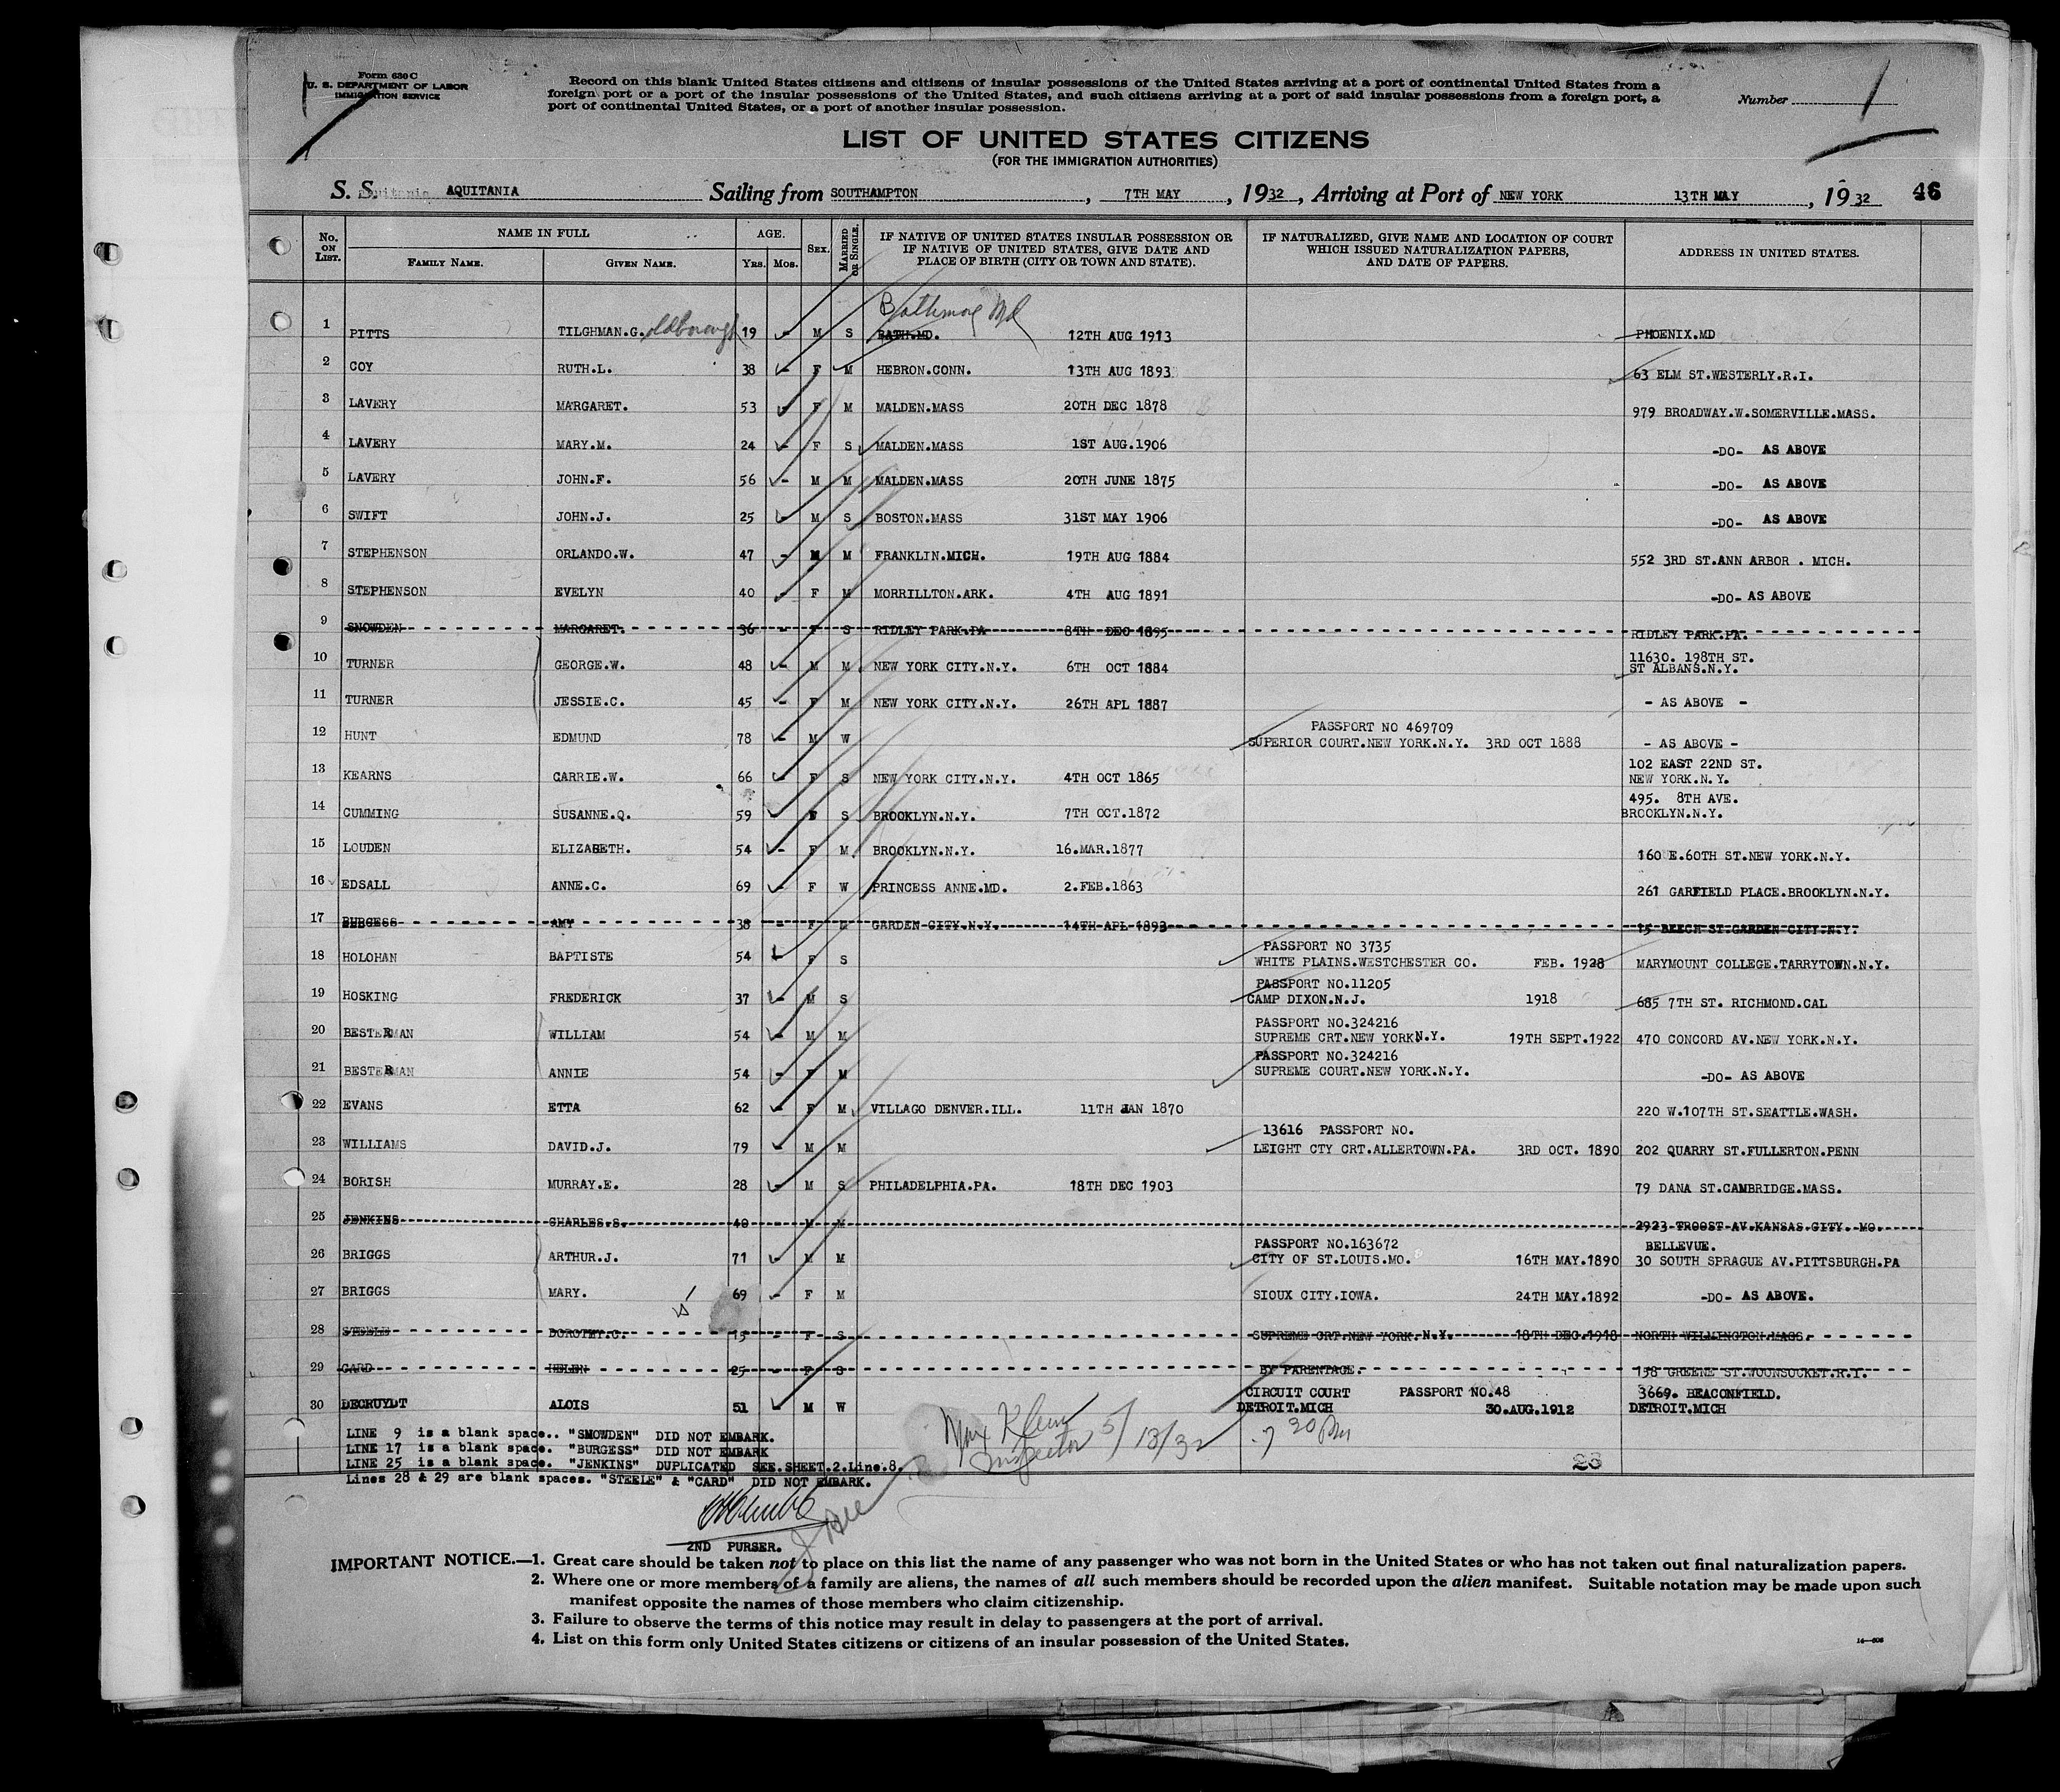 Form 630 C
U. S. DEPARTMENT OF LABOR
IMMIGRATION SERVICE
Record on this blank United States citizens and citizens of insular possessions of the United States arriving at a port of continental United States from a
foreign port or a port of the insular possessions of the United States, and such citizens arriving at a port of said insular possessions from a foreign port, a
port of continental United States, or a port of another insular possession.
Number
LIST OF UNITED STATES CITIZENS
(FOR THE IMMIGRATION AUTHORITIES)
S. S. AQUITANIA Sailing from SOUTHAMPTON, 7TH MAY, 1932, Arriving at Port of NEW YORK 13TH MAY, 1932 46
No. on List. NAME IN FULL FAMILY NAME. GIVEN NAME. AGE. Yrs. Mos. SEX. MARRIED OR SINGLE.
IF NATIVE OF UNITED STATES INSULAR POSSESSION OR
IF NATIVE OF UNITED STATES, GIVE DATE AND
PLACE OF BIRTH (CITY OR TOWN AND STATE).
IF NATURALIZED, GIVE NAME AND LOCATION OF COURT
WHICH ISSUED NATURALIZATION PAPERS,
AND DATE OF PAPERS.
ADDRESS IN UNITED STATES.
Bathmore Md
1 PITTS TILGHMAN.G.oldborough 19 - M S BATH.MD. 12TH AUG 1913 PHOENIX.MD
2 COY RUTH.L. 38 - F M HEBRON.CONN. 13TH AUG 1893 63 ELM ST.WESTERLY.R.I.
3 LAVERY MARGARET. 53 - F M MALDEN.MASS 20TH DEC 1878 979 BROADWAY.W.SOMERVILLE.MASS.
4 LAVERY MARY.M. 24 - F S MALDEN.MASS 1ST AUG.1906 -DO- AS ABOVE
5 LAVERY JOHN.F. 56 - M M MALDEN.MASS 20TH JUNE 1875 -DO- AS ABOVE
6 SWIFT JOHN.J. 25 - M S BOSTON.MASS 31ST MAY 1906 -DO- AS ABOVE
7 STEPHENSON ORLANDO.W. 47 - M M FRANKLIN.MICH. 19TH AUG 1884 552 3RD ST.ANN ARBOR . MICH.
8 STEPHENSON EVELYN 40 - F M MORRILLTON.ARK. 4TH AUG 1891 -DO- AS ABOVE
9 SNOWDEN MARGARET. 36 - F S RIDLEY PARK.PA 8TH DEC 1895 RIDLEY PARK.PA.
10 TURNER GEORGE.W. 48 - M M NEW YORK CITY.N.Y. 6TH OCT 1884 11630. 198TH ST.
ST ALBANS.N.Y.
11 TURNER JESSIE.C. 45 - F M NEW YORK CITY.N.Y. 26TH APL 1887 - AS ABOVE -
PASSPORT NO 469709
12 HUNT EDMUND 78 - M W SUPERIOR COURT.NEW YORK.N.Y. 3RD OCT 1888 - AS ABOVE -
102 EAST 22ND ST.
13 KEARNS CARRIE.W. 66 - F S NEW YORK CITY.N.Y. 4TH OCT 1865 NEW YORK.N.Y.
495. 8TH AVE.
14 CUMMING SUSANNE.Q. 59 - F S BROOKLYN.N.Y. 7TH OCT.1872 BROOKLYN.N.Y.
15 LOUDEN ELIZABETH. 54 - F M BROOKLYN.N.Y. 16.MAR.1877 160 E.60TH ST.NEW YORK.N.Y.
16 EDSALL ANNE.C. 69 - F W PRINCESS ANNE.MD. 2.FEB.1863 261 GARFIELD PLACE.BROOKLYN.N.Y.
17 BURGESS AMY 38 - F M GARDEN CITY.N.Y. 14TH APL 1893 15 BEECH ST.GARDEN CITY.N.Y.
PASSPORT NO 3735
18 HOLOHAN BAPTISTE 54 - F S WHITE PLAINS.WESTCHESTER CO. FEB. 1928 MARYMOUNT COLLEGE.TARRYTOWN.N.Y.
PASSPORT NO.11205
19 HOSKING FREDERICK 37 - M S CAMP DIXON.N.J. 1918 685 7TH ST. RICHMOND.CAL
PASSPORT NO.324216
20 BESTERMAN WILLIAM 54 - M M SUPREME CRT.NEW YORK.N.Y. 19TH SEPT.1922 470 CONCORD AV.NEW YORK.N.Y.
PASSPORT NO.324216
21 BESTERMAN ANNIE 54 - F M SUPREME COURT.NEW YORK.N.Y. -DO- AS ABOVE
22 EVANS ETTA 62 - F M VILLAGO DENVER.ILL. 11TH JAN 1870 220 W.107TH ST.SEATTLE.WASH.
13616 PASSPORT NO.
23 WILLIAMS DAVID.J. 79 - M M LEIGHT CTY CRT.ALLERTOWN.PA. 3RD OCT. 1890 202 QUARRY ST.FULLERTON.PENN
24 BORISH MURRAY.E. 28 - M S PHILADELPHIA.PA. 18TH DEC 1903 79 DANA ST.CAMBRIDGE.MASS.
25 JENKINS CHARLES.S. 40 - M M 2923 TROOST AV.KANSAS.CITY. MO.
PASSPORT NO.163672 BELLEVUE.
26 BRIGGS ARTHUR.J. 71 - M M CITY OF ST.LOUIS.MO. 16TH MAY.1890 30 SOUTH SPRAGUE AV.PITTSBURGH.PA
27 BRIGGS MARY. 69 - F M SIOUX CITY.IOWA. 24TH MAY.1892 -DO- AS ABOVE.
28 STEELE DOROTHY.C. 15 - F S SUPREME CRT.NEW YORK.N.Y. 18TH DEC.1918 NORTH WILMINGTON.MASS.
29 CARD HELEN 25 - F S BY PARENTAGE. 158 GREENE ST.WOONSOCKET.R.I.
CIRCUIT COURT PASSPORT NO.48 3669. BEACONFIELD.
30 DECRUYDT ALOIS 51 - M W DETROIT.MICH 30.AUG.1912 DETROIT.MICH
LINE 9 is a blank space.. "SNOWDEN" DID NOT EMBARK.
LINE 17 is a blank space. "BURGESS" DID NOT EMBARK
LINE 25 is a blank space. "JENKINS" DUPLICATED SEE.SHEET.2.Line.8.
Lines 28 & 29 are blank spaces. "STEELE" & "CARD" DID NOT EMBARK.
Max Klein 5/13/32
Inspector
23
2ND PURSER.
IMPORTANT NOTICE.—1. Great care should be taken not to place on this list the name of any passenger who was not born in the United States or who has not taken out final naturalization papers.
2. Where one or more members of a family are aliens, the names of all such members should be recorded upon the alien manifest. Suitable notation may be made upon such
manifest opposite the names of those members who claim citizenship.
3. Failure to observe the terms of this notice may result in delay to passengers at the port of arrival.
4. List on this form only United States citizens or citizens of an insular possession of the United States.